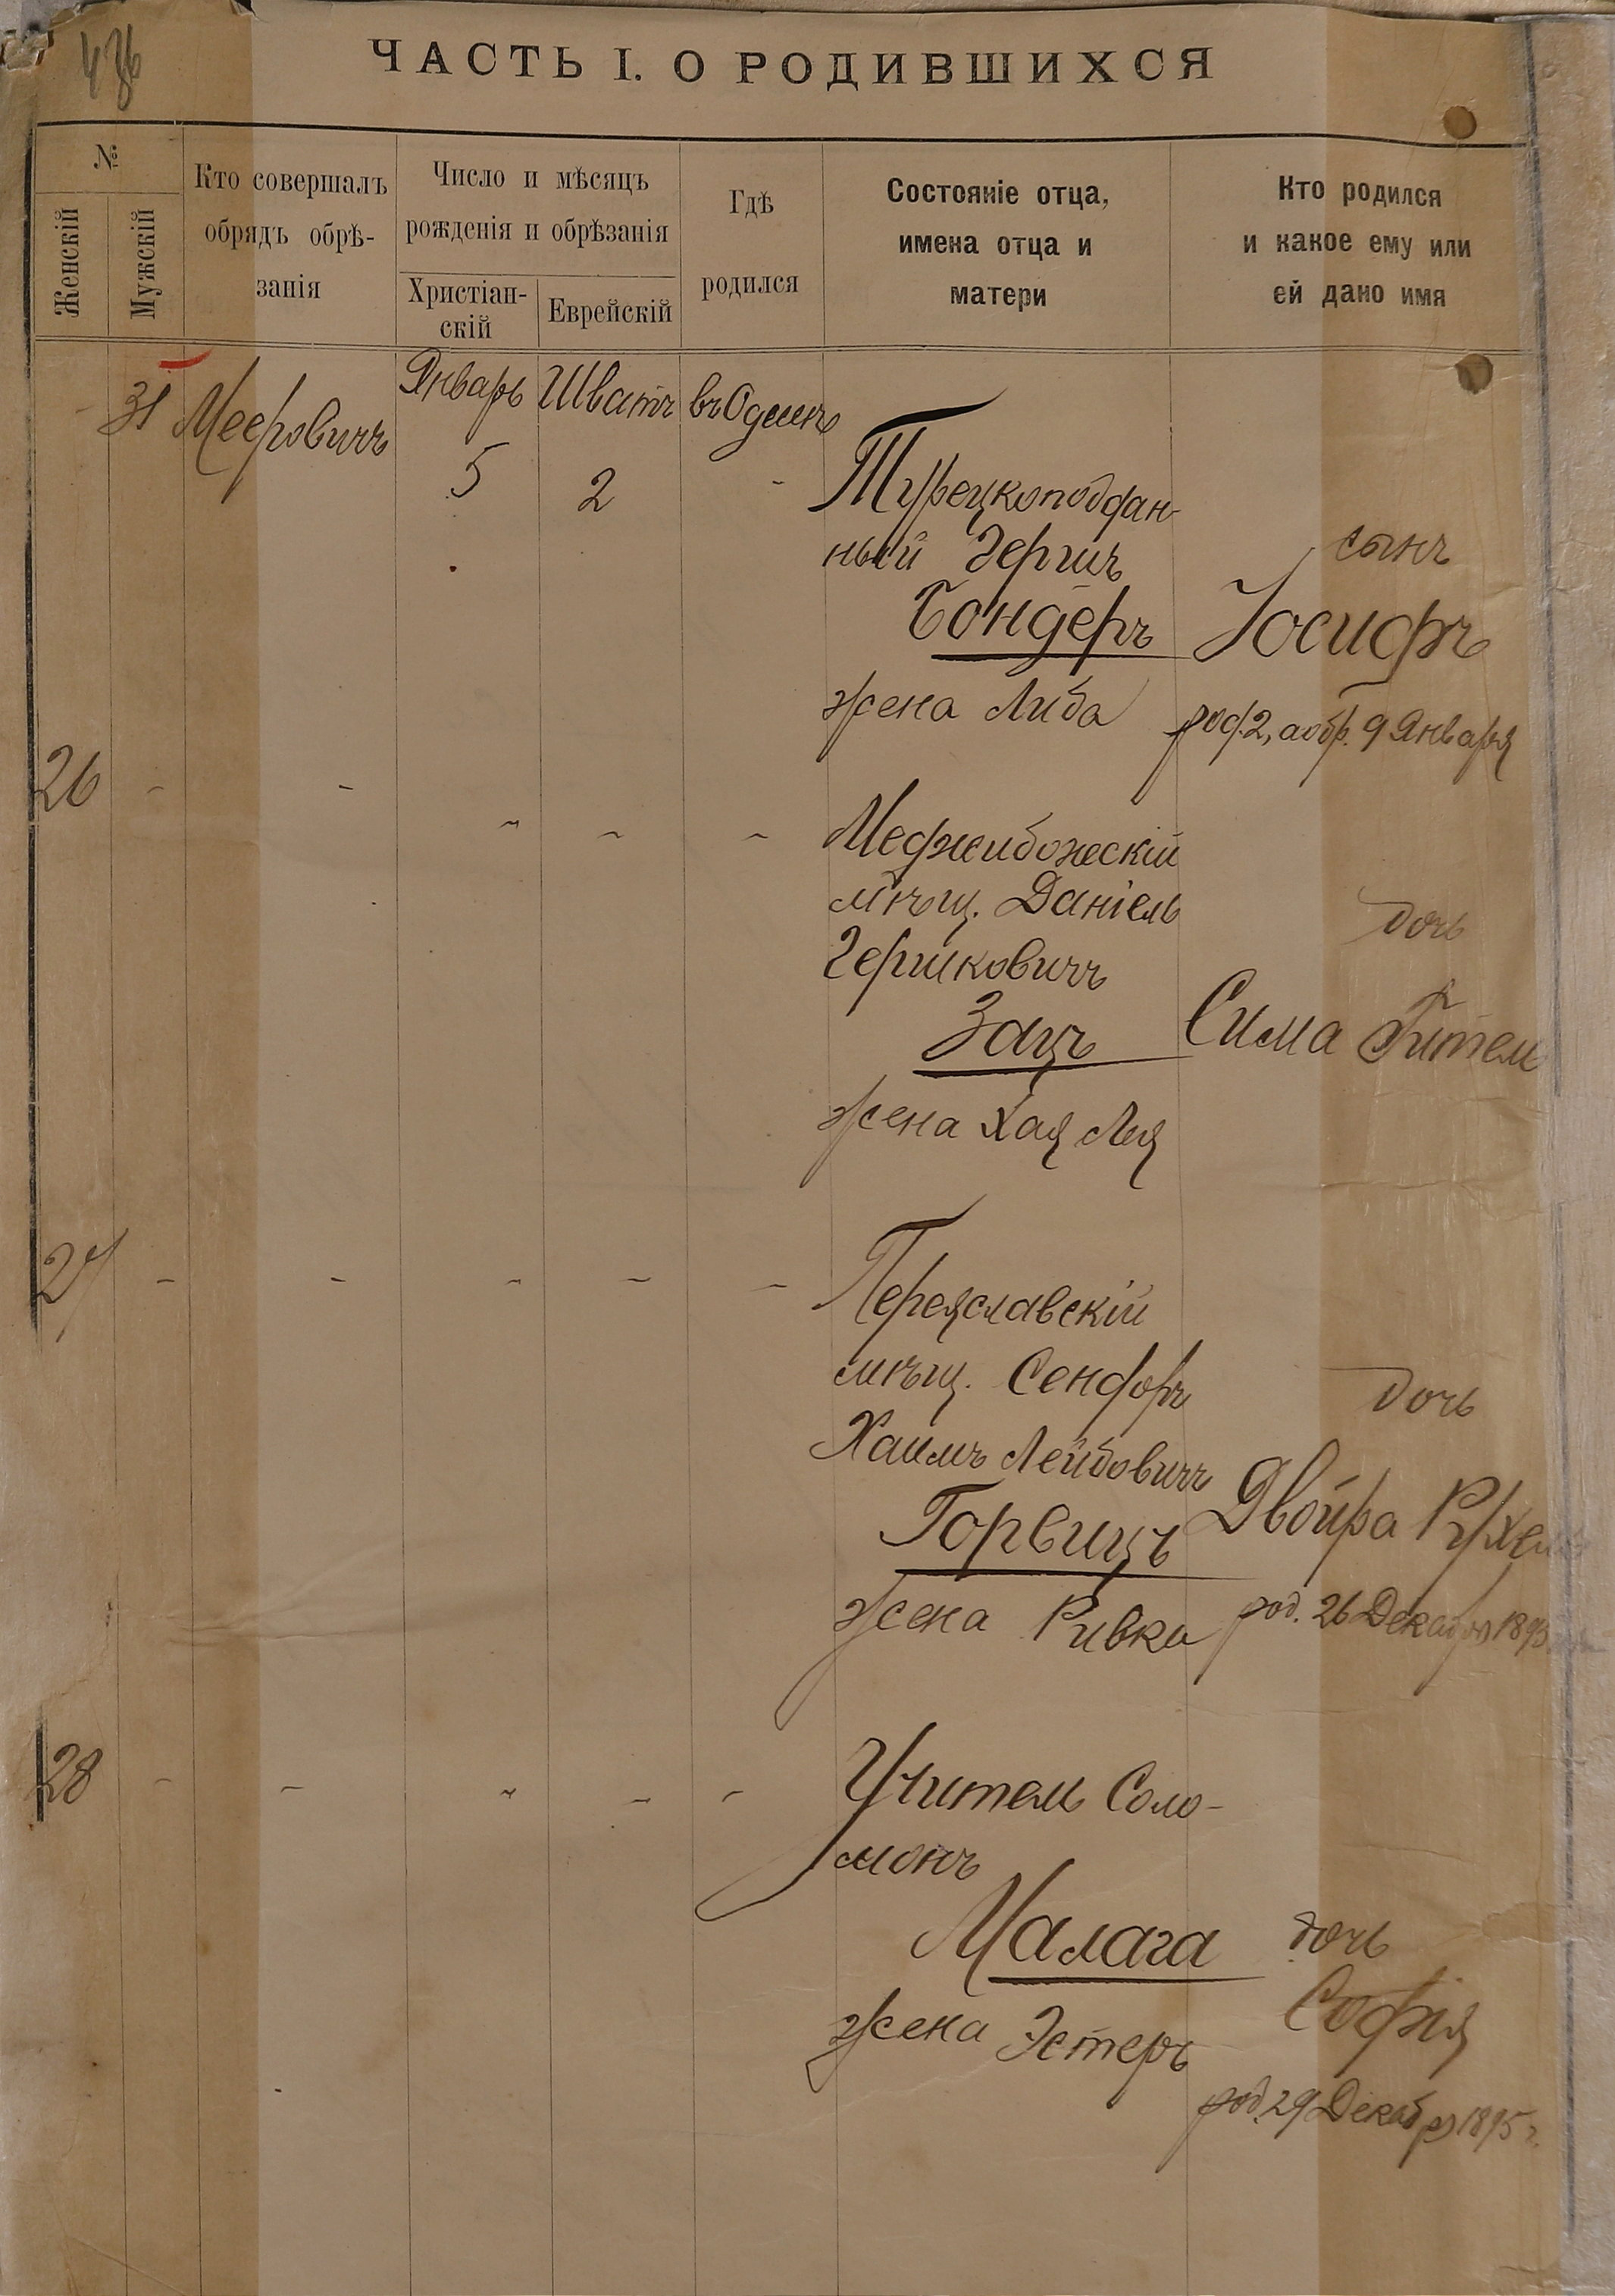 436
ЧАСТЬ I. О РОДИВШИХСЯ
№
Женскій
Мужскій
Кто совершалъ
обрядъ обрѣ-
занія
Число и мѣсяцъ
рожденія и обрѣзанія
Христіан-
скій
Еврейскій
Гдѣ
родился
Состояніе отца,
имена отца и
матери
Кто родился
и какое ему или
ей дано имя
31 Мееровичъ Январь Шватъ въ Одессѣ
5 2 -
Турецкоподдан-
ный Гершъ
Бондеръ
жена Либа
сынъ
Іосифъ
род. 2, а обр. 9 Января
26 - - " ~ ~
Меджибожескій
мѣщ. Даніель
Гершковичъ
Зацъ
жена Хая Лея
дочь
Сима Гитель
27 - - - - -
Переяславскій
мѣщ. Сендоръ
Хаимъ Лейбовичъ
Горвицъ
жена Ривка
дочь
Двойра Рухель
род. 26 Декабря 1895
28 - - " - -
Учитель Соло-
монъ
Малага
жена Эстеръ
дочь
Софія
род. 29 Декабря 1895 г.